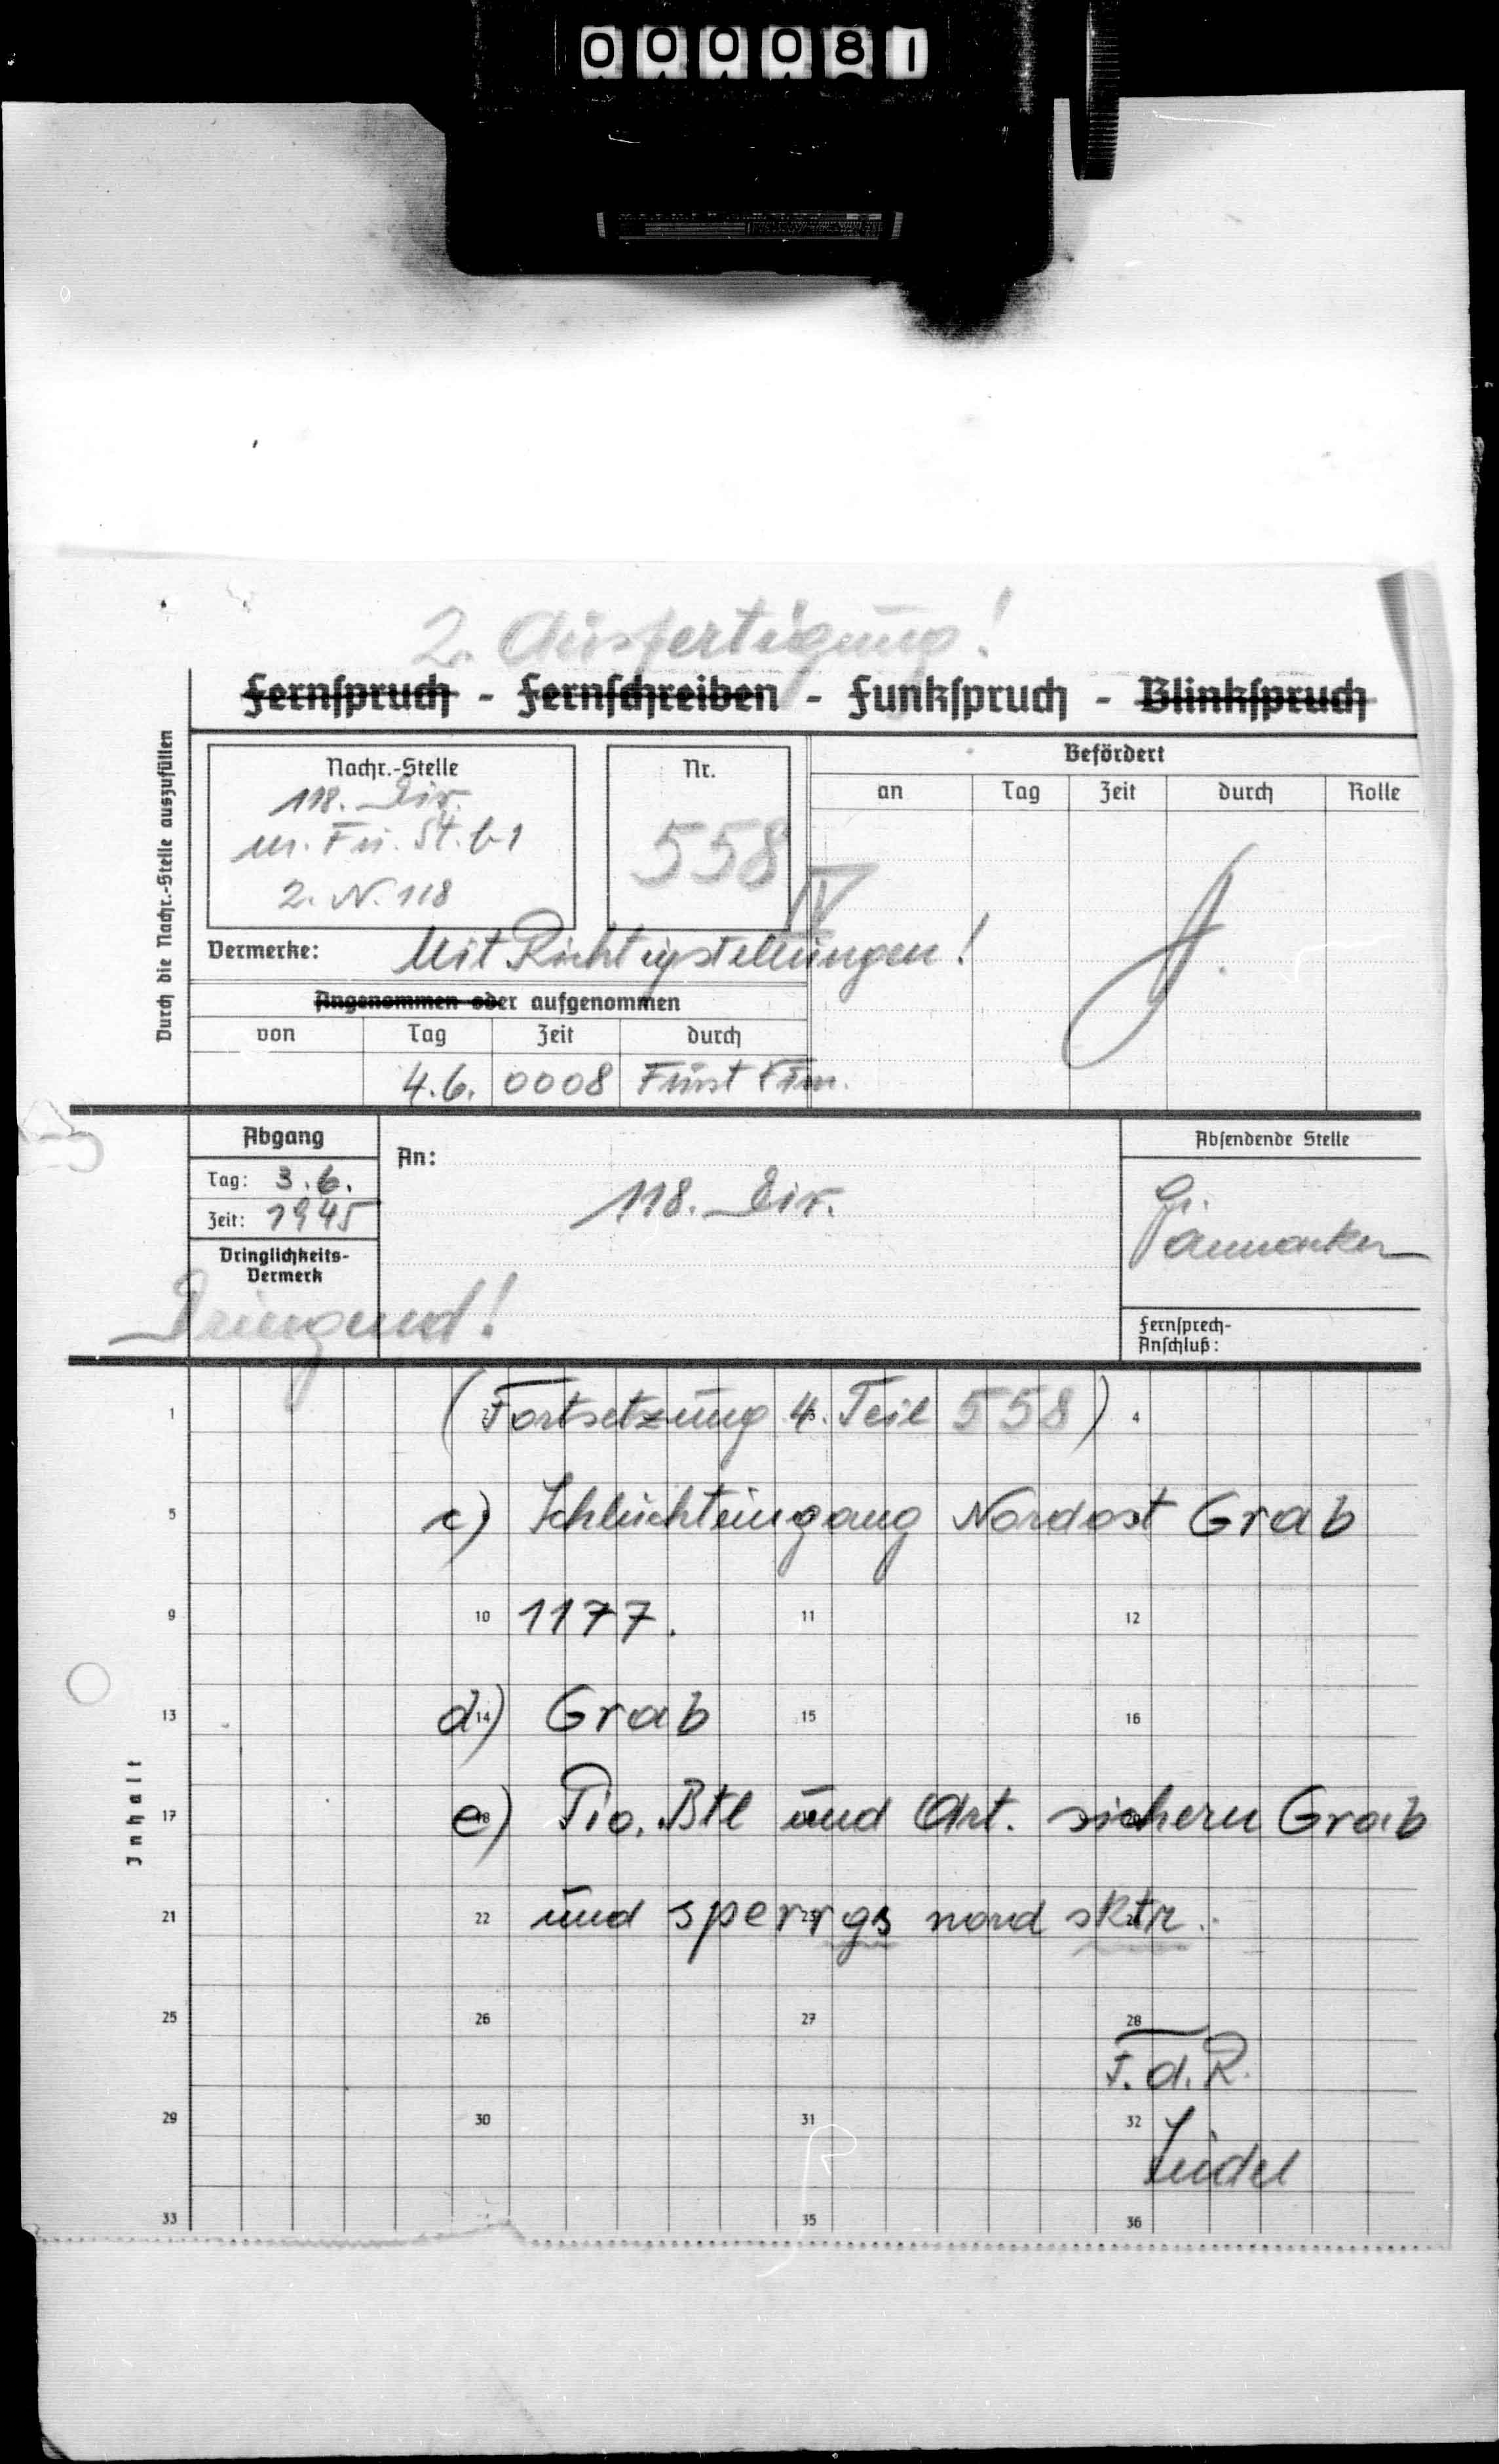 000081
2. Ausfertigung!
Fernspruch - Fernschreiben - Funkspruch - Blinkspruch
Durch die Nachr.-Stelle auszufüllen
Nachr.-Stelle
118. Div.
m. Fu. St. b1
2. N. 118
Nr.
558
IV
Befördert
an Tag Zeit durch Rolle
Vermerke: Mit Richtigstellungen!
Angenommen oder aufgenommen
von Tag Zeit durch
4.6. 0008 Fürst
Abgang
Tag: 3.6.
Zeit: 1945
Dringlichkeits-
Vermerk
Dringend!
An:
118. Div.
Absendende Stelle
Fernsprech-
Anschluß:
Inhalt
1 (Fortsetzung 4. Teil 558) 4
5 c) Schluchteingang Nordost Grab
9 10 1177. 11 12
13 d) 14 Grab 15 16
17 e) Pio. Btl und Art. sichern Grab
21 22 und sperrgs nord sktr.
25 26 27 28
F.d.R.
29 30 31 32
33 35 36